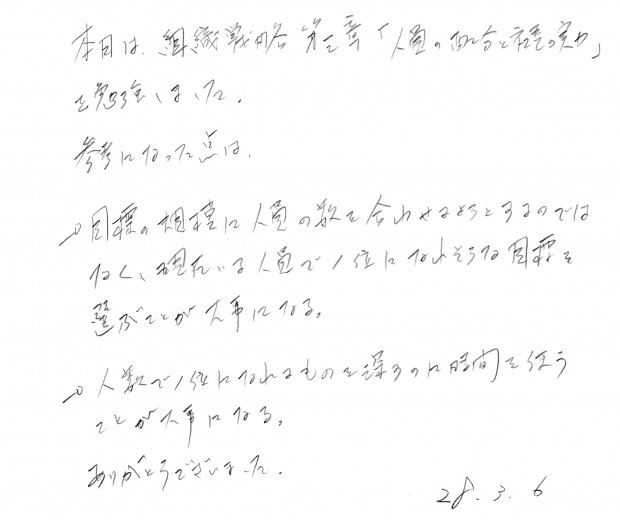 本日は、組織戦略第七章「人員の配分と社長の実力」
を勉強しました。
参考になった点は、
→目標の規模に人員の数を合わせようとするのでは
なく、現在いる人員で1位になれそうな目標を
選ぶことが大事になる。
→人数で1位になれるものを探すのに時間を使う
ことが大事になる。
ありがとうございました。
28.3.6